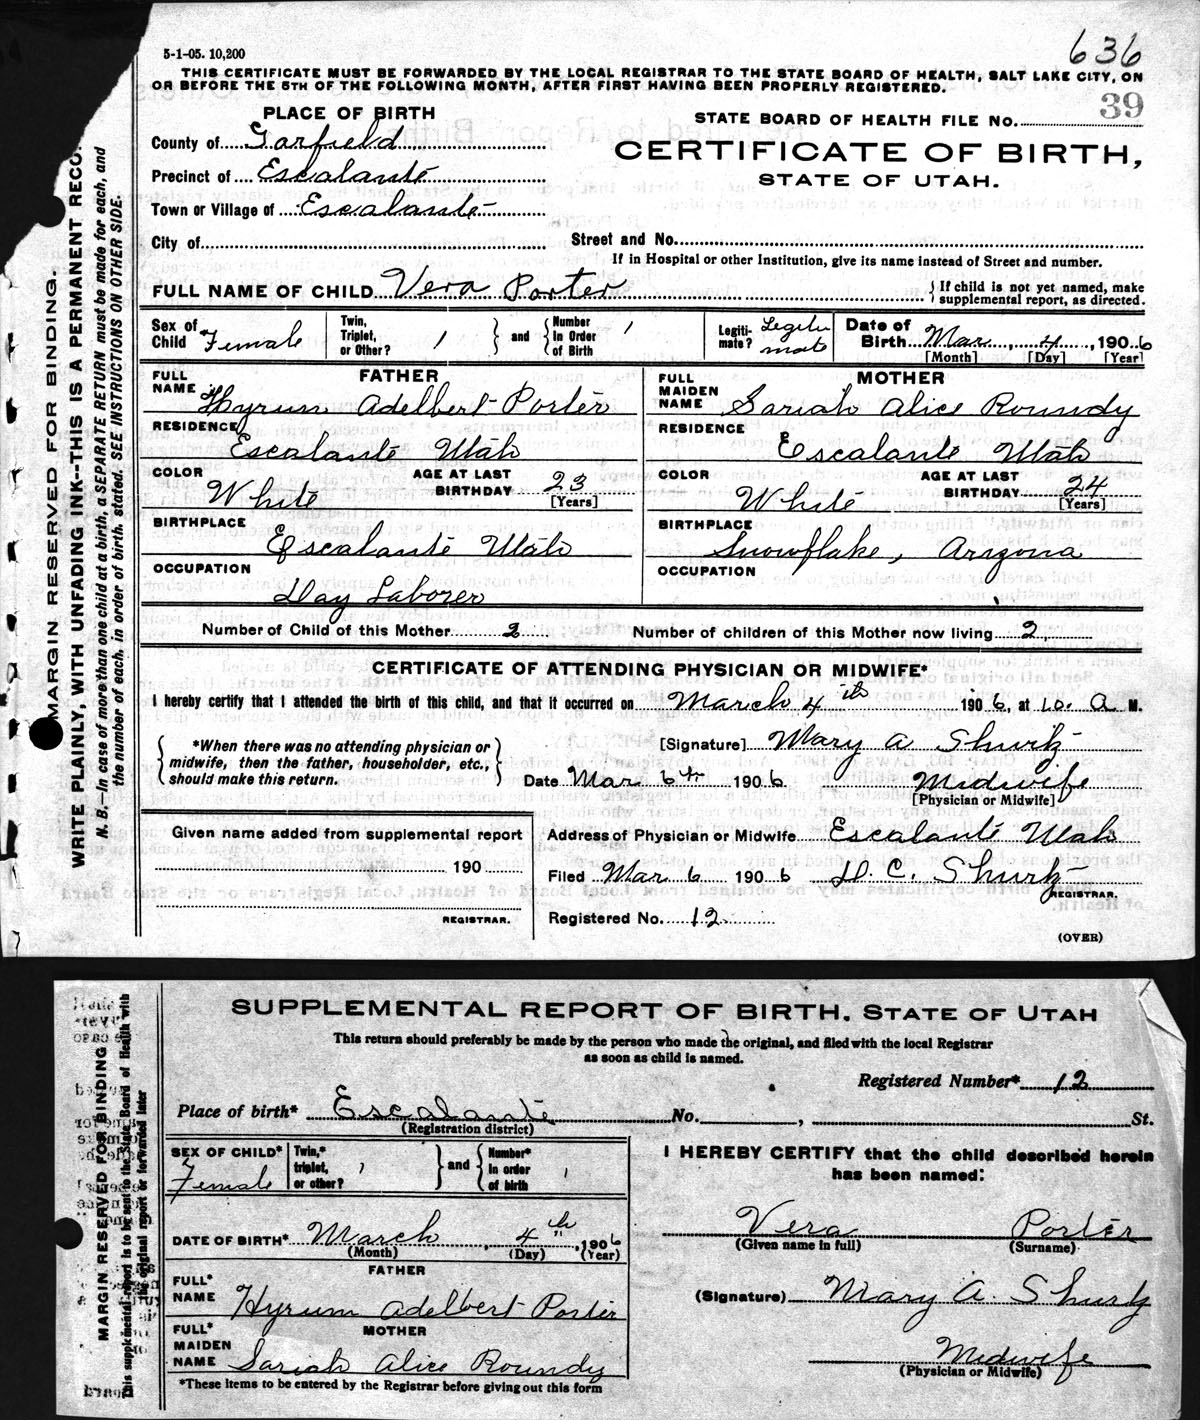 636
5-1-05. 10,200
THIS CERTIFICATE MUST BE FORWARDED BY THE LOCAL REGISTRAR TO THE STATE BOARD OF HEALTH, SALT LAKE CITY, ON
OR BEFORE THE 5TH OF THE FOLLOWING MONTH, AFTER FIRST HAVING BEEN PROPERLY REGISTERED.
PLACE OF BIRTH
STATE BOARD OF HEALTH FILE No. 39
County of Garfield
CERTIFICATE OF BIRTH,
Precinct of Escalante
STATE OF UTAH.
Town or Village of Escalante
City of
Street and No.
If in Hospital or other Institution, give its name instead of Street and number.
FULL NAME OF CHILD Vera Porter { If child is not yet named, make supplemental report, as directed.
Sex of Child Female
Twin, Triplet, or Other? 1 } and { Number In Order of Birth 1
Legiti-mate? Legitimate
Date of Birth Mar, 4, 1906
[Month] [Day] [Year]
FATHER
FULL NAME Hyrum Adelbert Porter
RESIDENCE Escalante Utah
COLOR White
AGE AT LAST BIRTHDAY 23 [Years]
BIRTHPLACE Escalante Utah
OCCUPATION Day Laborer
MOTHER
FULL MAIDEN NAME Sariah Alice Roundy
RESIDENCE Escalante Utah
COLOR White
AGE AT LAST BIRTHDAY 24 [Years]
BIRTHPLACE Snowflake, Arizona
OCCUPATION
Number of Child of this Mother 2 Number of children of this Mother now living 2
CERTIFICATE OF ATTENDING PHYSICIAN OR MIDWIFE*
I hereby certify that I attended the birth of this child, and that it occurred on March 4th 1906, at 10. A M.
{ *When there was no attending physician or midwife, then the father, householder, etc., should make this return. }
[Signature] Mary A Shurtz
Date Mar 6th 1906 Midwife
[Physician or Midwife]
Given name added from supplemental report
190
REGISTRAR.
Address of Physician or Midwife Escalante Utah
Filed Mar 6 1906 D. C. Shurtz
REGISTRAR.
Registered No. 12
(OVER)
MARGIN RESERVED FOR BINDING.
WRITE PLAINLY, WITH UNFADING INK--THIS IS A PERMANENT RECO
N. B.—In case of more than one child at a birth, a SEPARATE RETURN must be made for each, and
the number of each, in order of birth, stated. SEE INSTRUCTIONS ON OTHER SIDE.
SUPPLEMENTAL REPORT OF BIRTH, STATE OF UTAH
This return should preferably be made by the person who made the original, and filed with the local Registrar
as soon as child is named.
Registered Number* 12
Place of birth* Escalante No. , St.
(Registration district)
SEX OF CHILD* Female
Twin,* triplet, or other? 1 } and { Number* in order of birth 1
DATE OF BIRTH* March, 4th, 1906
(Month) (Day) (Year)
FATHER
FULL* NAME Hyrum Adelbert Porter
MOTHER
FULL* MAIDEN NAME Sariah Alice Roundy
*These items to be entered by the Registrar before giving out this form
I HEREBY CERTIFY that the child described herein
has been named:
Vera Porter
(Given name in full) (Surname)
(Signature) Mary A. Shurtz
Midwife
(Physician or Midwife)
MARGIN RESERVED FOR BINDING
This supplemental report is to be sent to the State Board of Health with
the original report or forwarded later